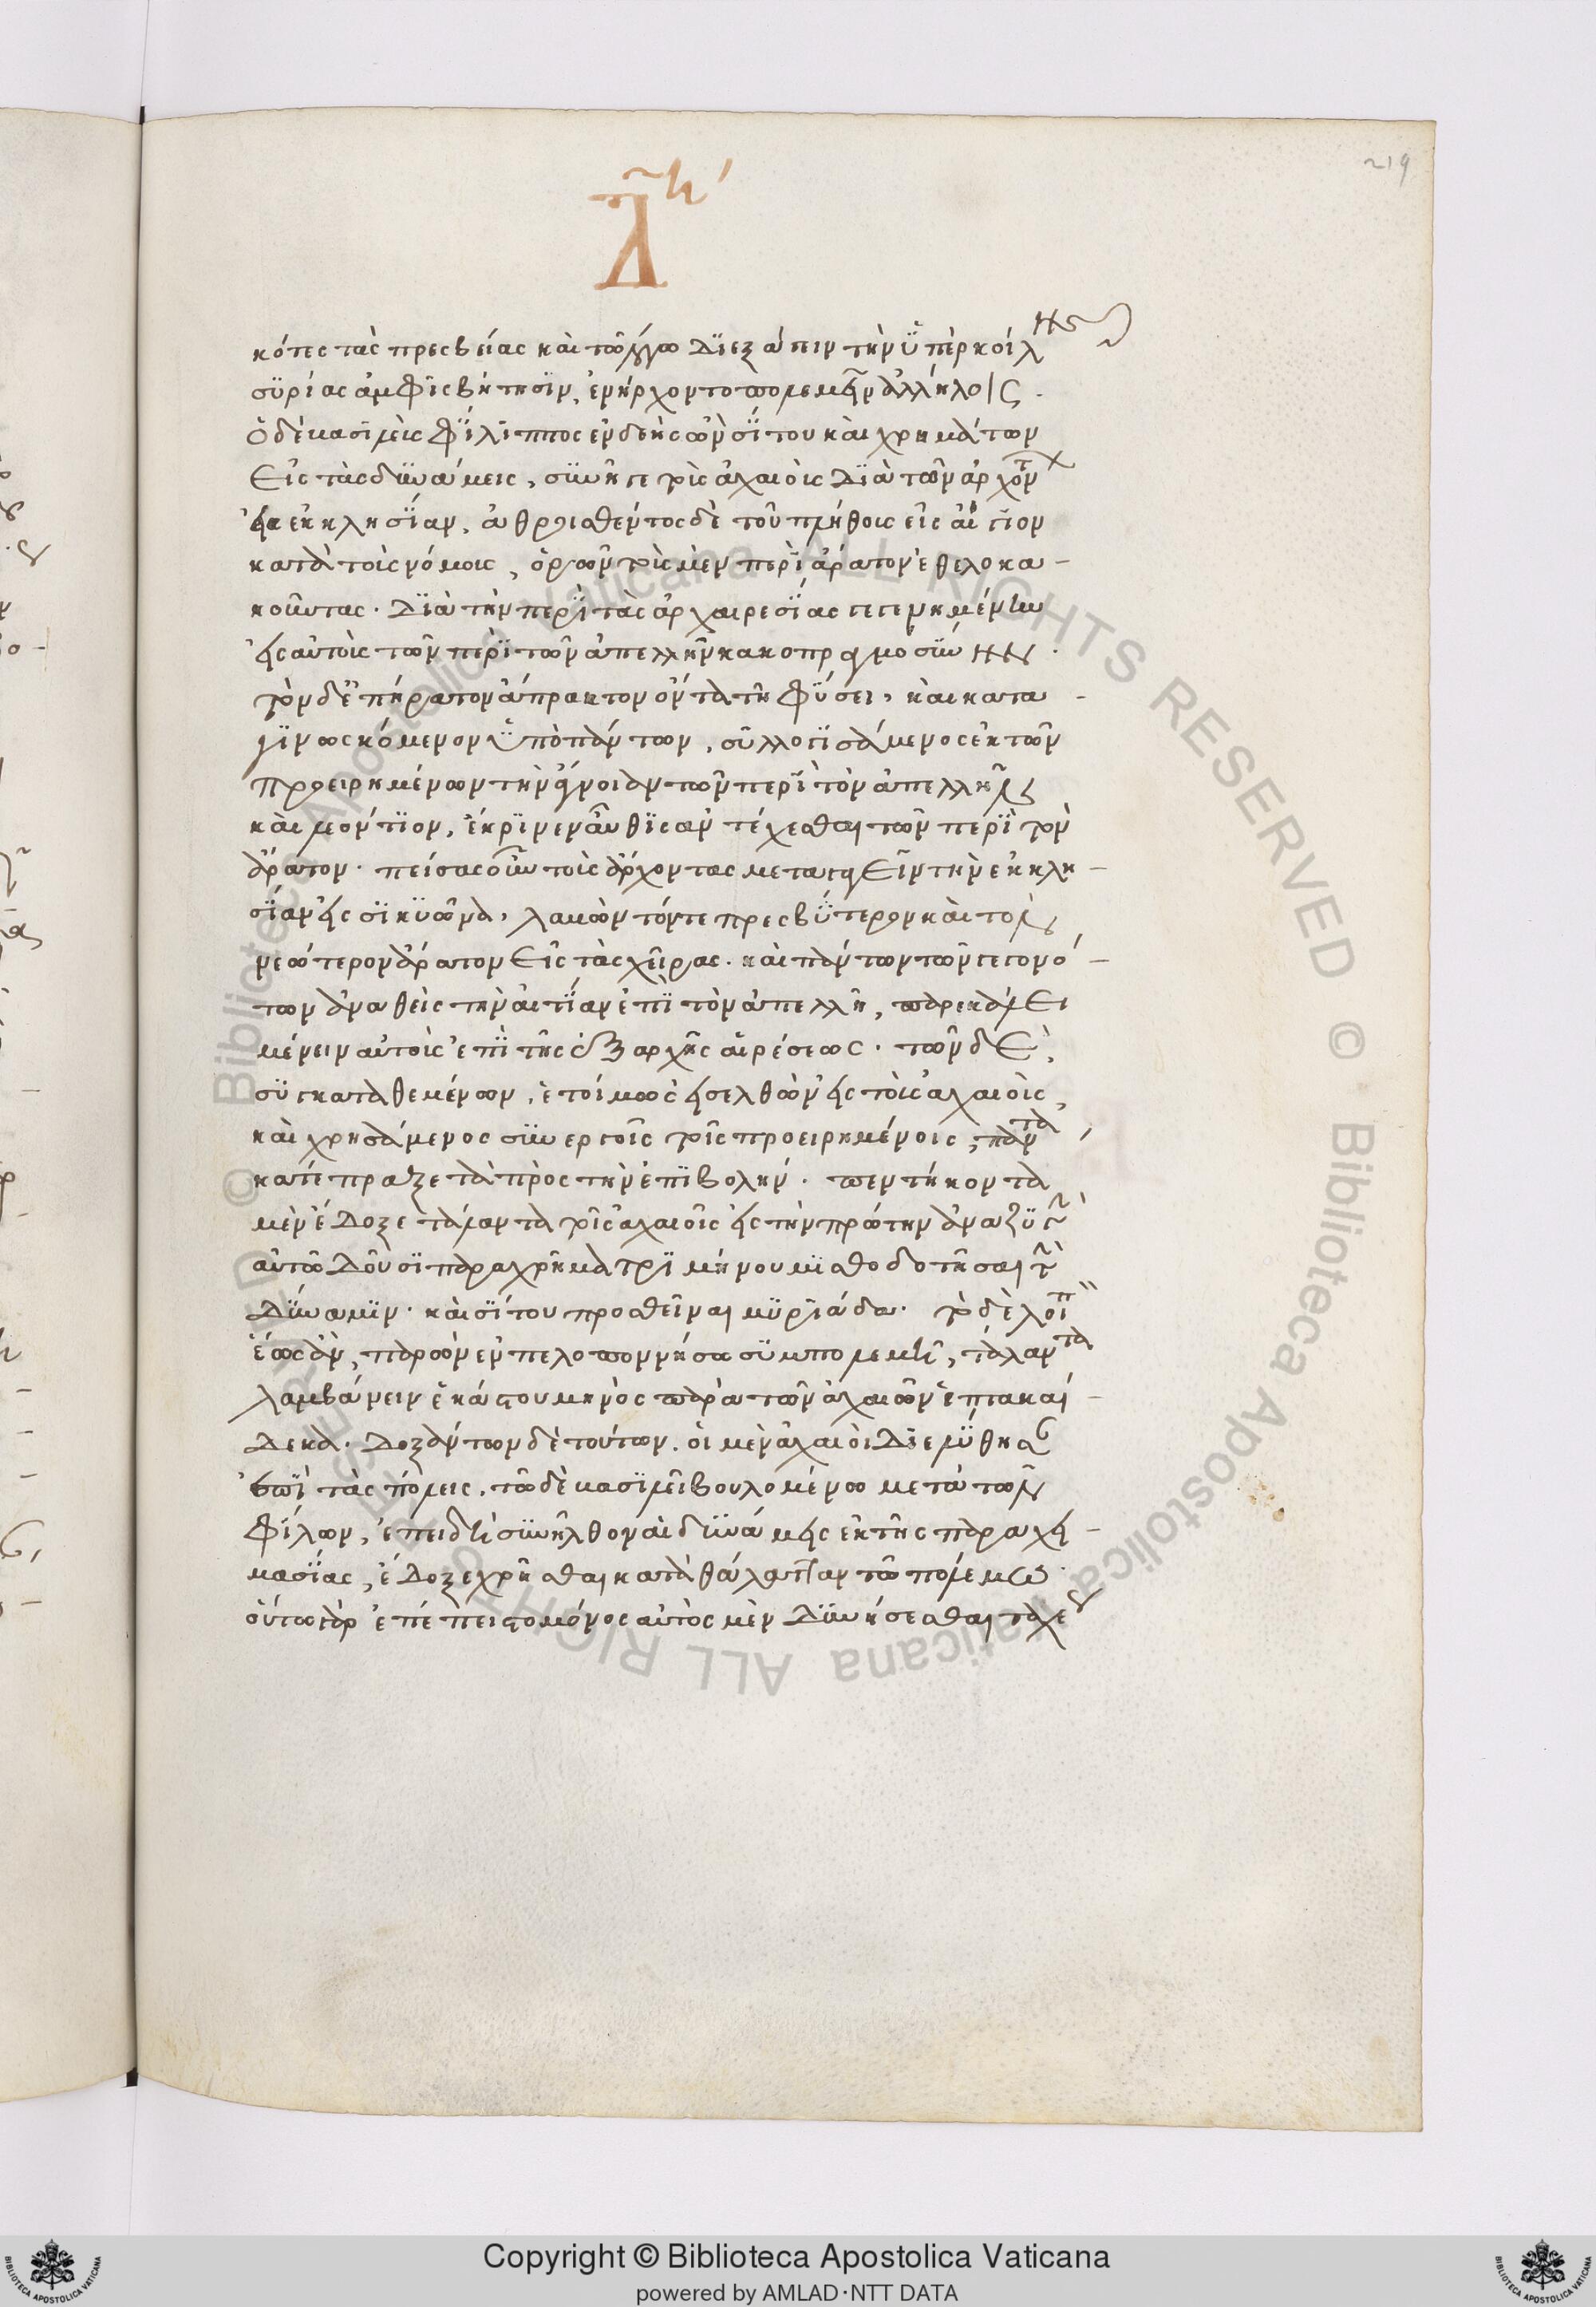 219
Δη
κότες τὰς πρεσβείας καὶ τῶ λόγω διεξάγειν τὴν ὑπὲρ κοίλης
συρίας ἀμφισβήτησιν, ἐνήρχοντο πολεμεῖν ἀλλήλοις.
ὁ δὲ βασιλεὺς φίλιππος ἐνδεὴς ὢν σίτου καὶ χρημάτων
εἰς τὰς δυνάμεις, συνῆγε τοὺς ἀχαιοὺς διὰ τῶν ἀρχόντων
εἰς ἐκκλησίαν, ἀθροισθέντος δὲ τοῦ πλήθους εἰς αἴγιον
κατὰ τοὺς νόμους, ὁρῶν τοὺς μὲν περὶ ἄρατον ἐθελοκα-
κοῦντας. διὰ τὴν περὶ τὰς ἀρχαιρεσίας γεγενημένην
εἰς αὐτοὺς τῶν περὶ τῶν ἀπελλῆν κακοπραγμοσύνην.
τὸν δ' ἐπήρατον ἄπρακτον ὄντα τῆ φύσει, καὶ κατα-
γινωσκόμενον ὑπὸ πάντων, συλλογισάμενος ἐκ τῶν
προειρημένων τὴν ἄγνοιαν τῶν περὶ τὸν ἀπελλῆν
καὶ λεόντιον, ἔκρινεν αὖθις ἀντέχεσθαι τῶν περὶ τὸν
ἄρατον. πείσας οὖν τοὺς ἄρχοντας μεταγαγεῖν τὴν ἐκκλη-
σίαν εἰς σικυῶνα, λαβὼν τόν τε πρεσβύτερον καὶ τὸν
νεώτερον ἄρατον εἰς τὰς χεῖρας. καὶ πάντων τῶν γεγονό-
των ἀναθεὶς τὴν αἰτίαν ἐπὶ τὸν ἀπελλῆ, παρεκάλει
μένειν αὐτοὺς ἐπὶ τῆς ἐξ ἀρχῆς αἱρέσεως. τῶν δὲ
συγκαταθεμένων, ἑτοίμως εἰσελθὼν εἰς τοὺς ἀχαιοὺς,
καὶ χρησάμενος συνεργοῖς τοῖς προειρημένοις, πάντα
κατέπραξε τὰ πρὸς τὴν ἐπιβολήν. πεντήκοντα
μὲν ἔδοξε τάλαντα τοῖς ἀχαιοῖς εἰς τὴν πρώτην ἀναζυγὴν
αὐτῶ δοῦσι παραχρῆμα τριμήνου μισθοδοτῆσαι τὴν
δύναμιν. καὶ σίτου προσθεῖναι μυριάδα. τὸ δὲ λοιπὸν
ἕως ἂν, παρὼν ἐν πελοποννήσω συμπολεμῆ, τάλαντα
λαμβάνειν ἑκάστου μηνὸς παρὰ τῶν ἀχαιῶν ἑπτακαί-
δεκα. δοξάντων δὲ τούτων. οἱ μὲν ἀχαιοὶ διελύθησαν
ἐπὶ τὰς πόλεις. τῶ δὲ βασιλεῖ βουλομένω μετὰ τῶν
φίλων, ἐπειδὴ συνῆλθον αἱ δυνάμεις ἐκ τῆς παραχει-
μασίας, ἔδοξε χρῆσθαι κατὰ θάλατταν τῶ πολέμω.
οὕτω γὰρ ἐπέπειστο μόνος αὐτὸς μὲν δυνήσεσθαι ταχέως